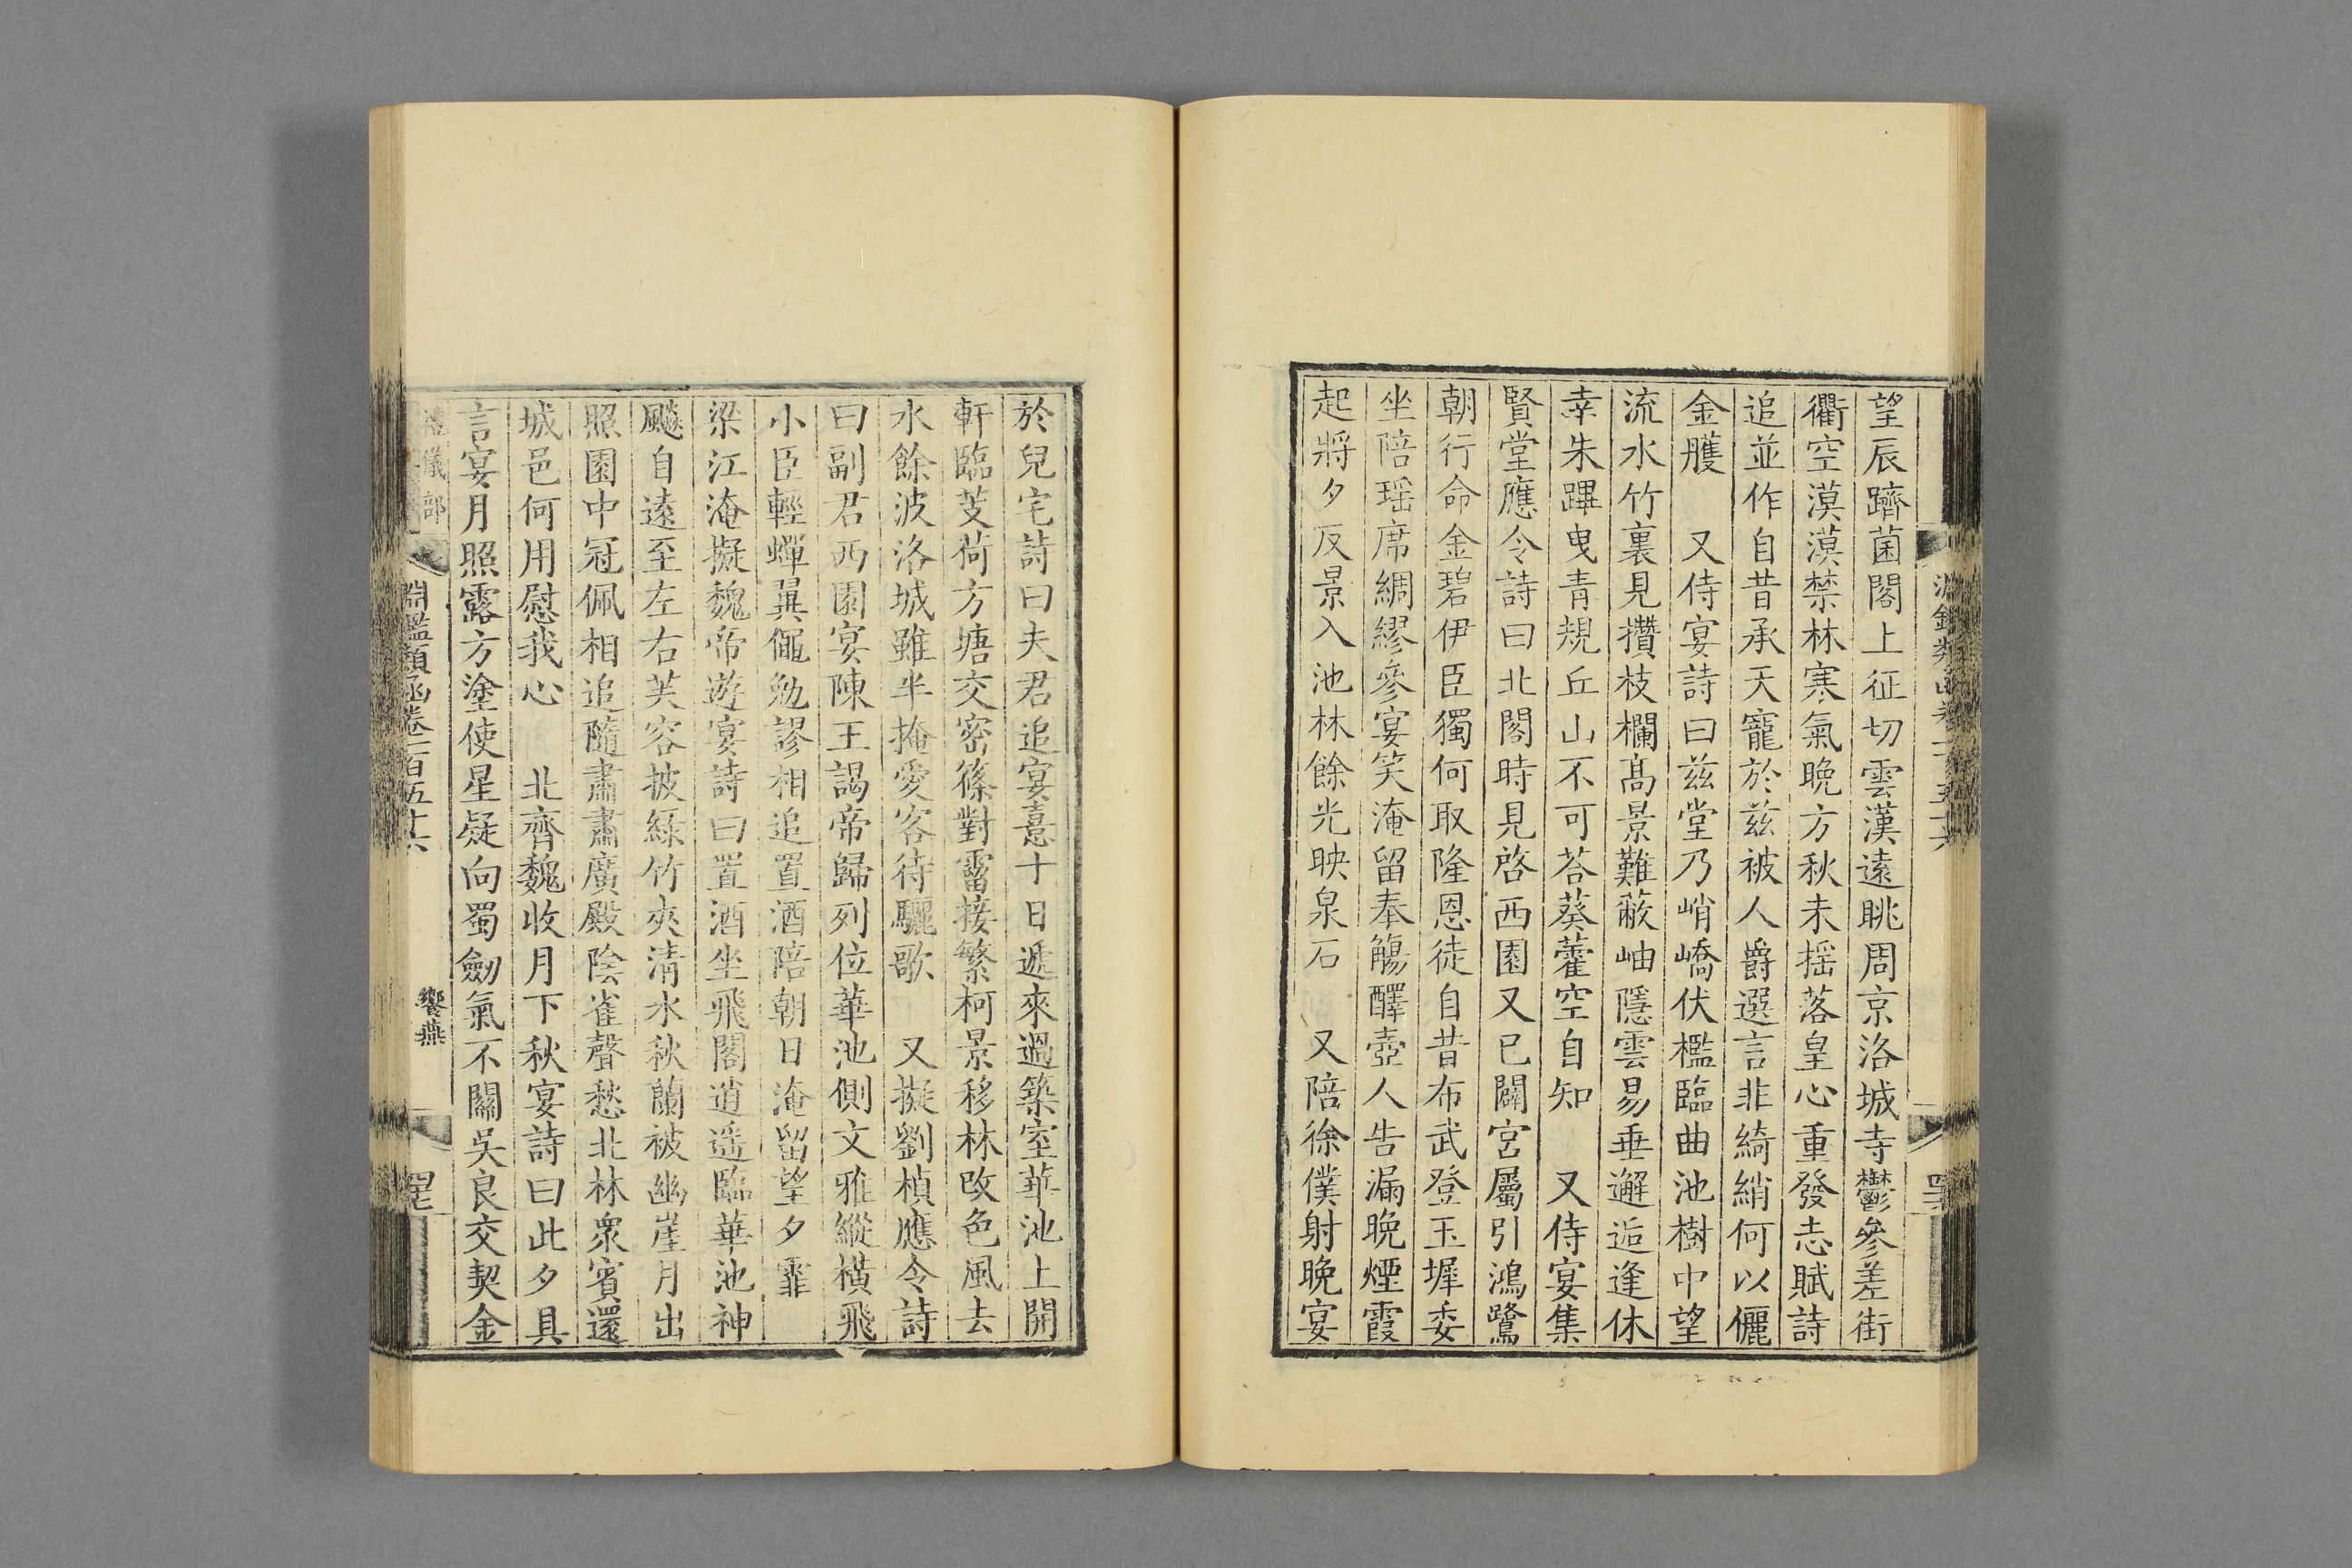 望辰躋菌閣上征切雲漢遠眺周京洛城寺鬱參差街
衢空漠漠禁林寒氣晚方秋未揺落皇心重發志賦詩
追並作自昔承天寵於兹被人爵選言非綺綃何以儷
金雘　又侍宴詩曰兹堂乃峭嶠伏檻臨曲池樹中望
流水竹裏見攢枝欄髙景難蔽岫隱雲易垂邂逅逢休
幸朱蹕曳青規丘山不可荅葵藿空自知　又侍宴集
賢堂應令詩曰北閣時見啓西園又已闢宮屬引鴻鷺
朝行命金碧伊臣獨何取隆恩徒自昔布武登玉墀委
坐陪瑶席綢繆參宴笑淹留奉觴醳壺人告漏晚煙霞
起將夕反景入池林餘光映泉石　又陪徐僕射晚宴
於兒宅詩曰夫君追宴憙十日遞來過築室華池上開
軒臨芰荷方塘交密篠對霤接繁柯景移林改色風去
水餘波洛城雖半掩愛客待驪歌　又擬劉楨應令詩
曰副君西園宴陳王謁帝歸列位華池側文雅縱橫飛
小臣輕蟬翼僶勉謬相追置酒陪朝日淹留望夕霏
梁江淹擬魏帝遊宴詩曰置酒坐飛閣逍遥臨華池神
飈自遠至左右芙容披綠竹夾清水秋蘭被幽崖月出
照園中冠佩相追隨肅肅廣殿陰雀聲愁北林衆賓還
城邑何用慰我心　北齊魏收月下秋宴詩曰此夕具
言宴月照露方塗使星疑向蜀劒氣不關吳良交契金
儀部　淵鑑類函卷一百五十六　饗燕